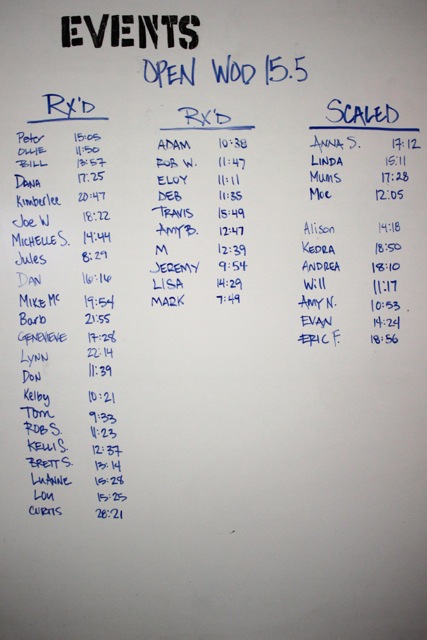 EVENTS
OPEN WOD 15.5
RX'D
Peter 15:05
OLLIE 11:50
BILL 13:57
DANA 17:25
Kimberlee 20:47
Joe W 18:22
MICHELLE S. 14:44
Jules 8:29
DAN 16:16
MIKE Mc 19:54
Barb 21:55
GENEVIEVE 17:28
LYNN 22:14
DON 11:39
Kelby 10:21
Tom 9:33
ROB S. 11:23
KELLI S. 12:37
BRETT S. 13:14
LuANNE 15:28
LOU 15:25
CURTIS 28:21
RX'D
ADAM 10:38
ROB W. 11:47
ELOY 11:11
DEB 11:35
TRAVIS 15:49
AMY B. 12:47
M 12:39
JEREMY 9:54
LISA 14:29
MARK 7:49
SCALED
ANNA S. 17:12
LINDA 15:11
MUMS 17:28
MOE 12:05
Alison 14:18
KEDRA 18:50
ANDREA 18:10
Will 11:17
AMY N. 10:53
EVAN 14:24
ERIC F. 18:56